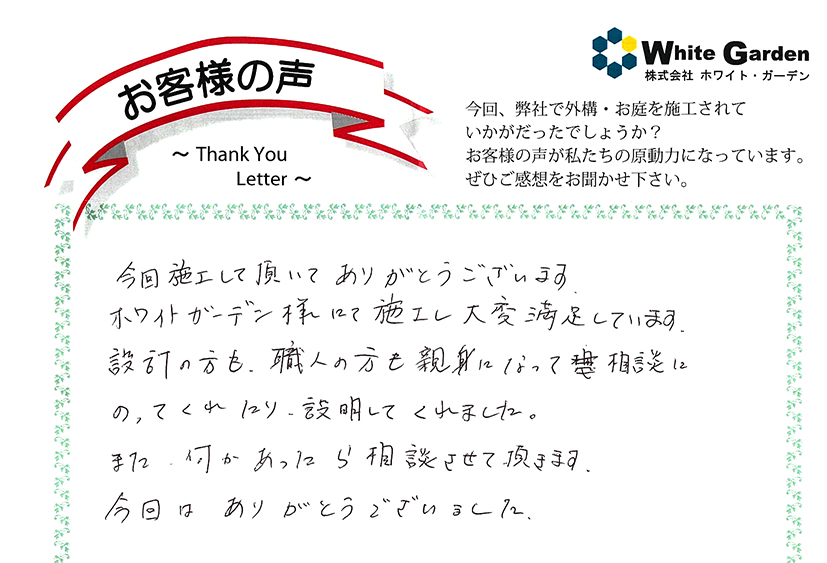 お客様の声
~ Thank You
Letter ~
White Garden
株式会社 ホワイト・ガーデン
今回、弊社で外構・お庭を施工されて
いかがだったでしょうか？
お客様の声が私たちの原動力になっています。
ぜひご感想をお聞かせ下さい。
今回施工して頂いてありがとうございます.
ホワイトガーデン様にて施工し大変満足しています.
設計の方も、職人の方も親身になって相談に
のってくれたり、説明してくれました。
また、何かあったら相談させて頂きます.
今回はありがとうございました.